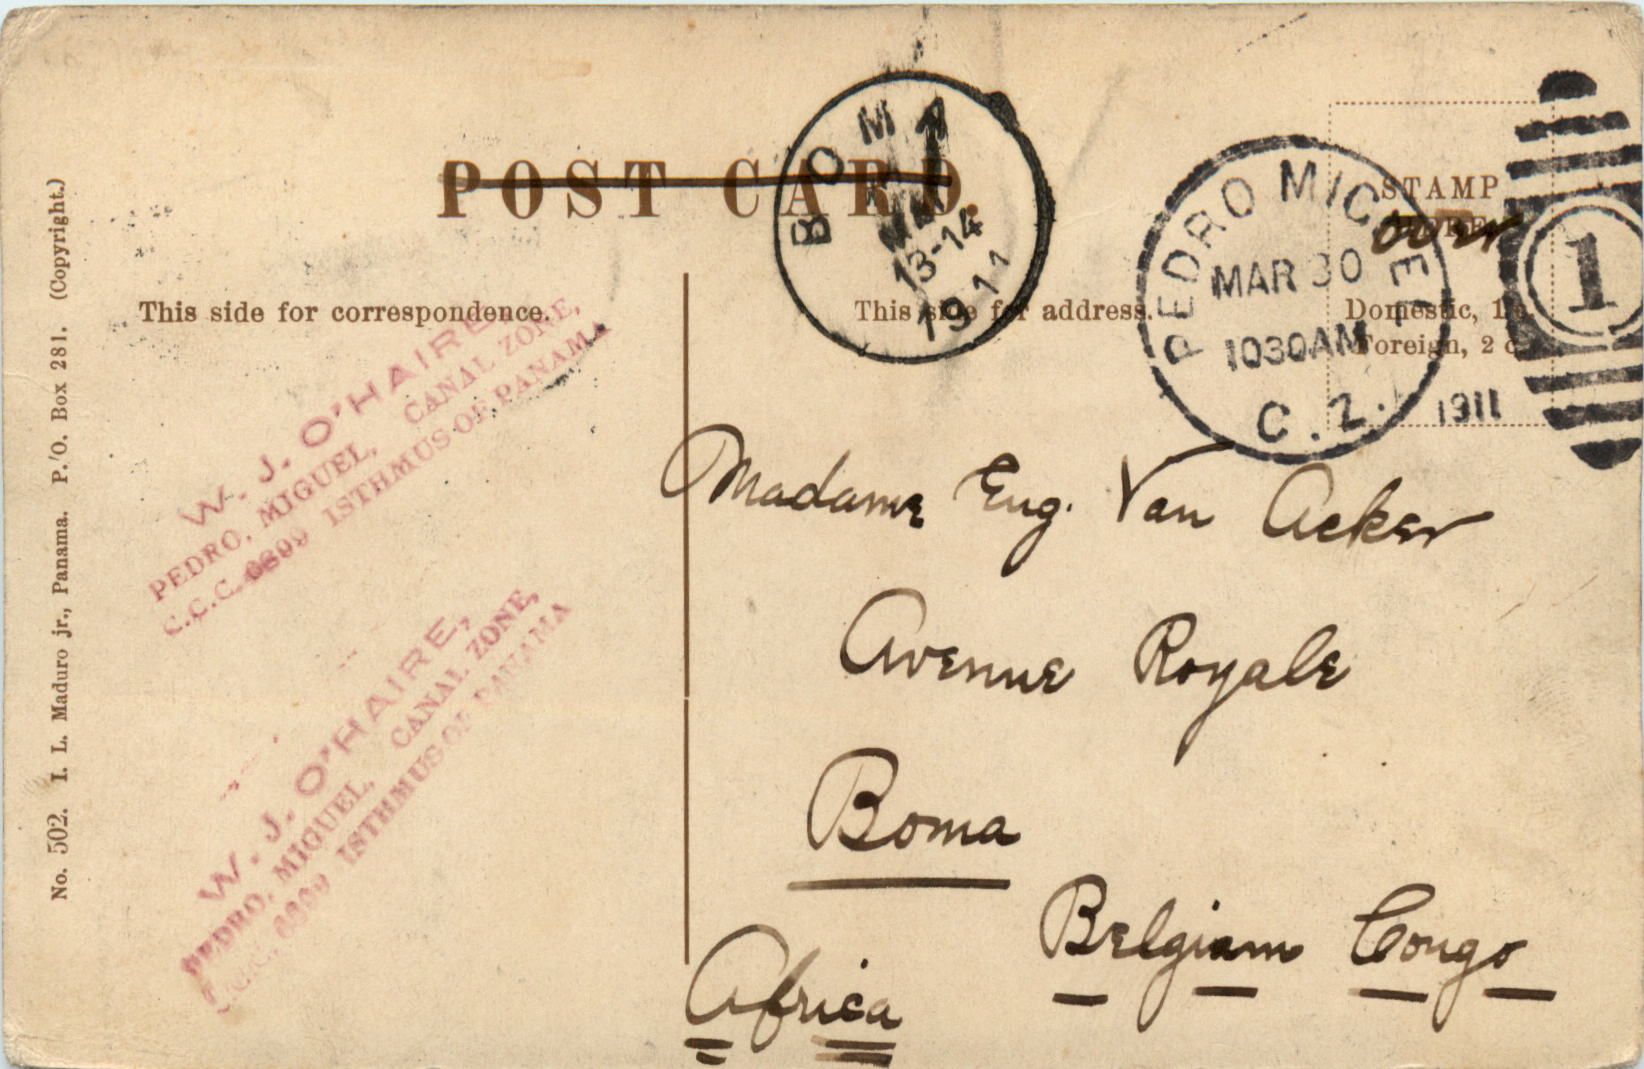 POST CARD.
BOMA
13-14
1911
PEDRO MIGUEL
MAR 30
1030AM
C.Z.
1911
1
STAMP
over
This side for correspondence.
This side for address.
Domestic, 1 c.
Foreign, 2 c
W. J. O'HAIRE,
PEDRO, MIGUEL, CANAL ZONE,
C.C.C. 6899 ISTHMUS OF PANAMA
W. J. O'HAIRE,
PEDRO, MIGUEL, CANAL ZONE,
6899 ISTHMUS OF PANAMA
Madame Eug. Van Acker
Avenue Royale
Boma
Belgian Congo
Africa
No. 502. I. L. Maduro jr., Panama. P. O. Box 281. (Copyright.)